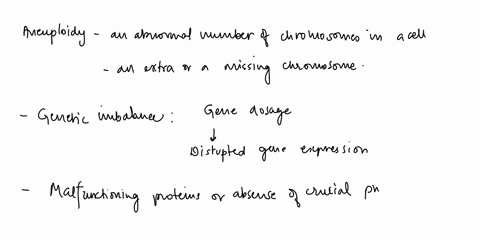 Aneuploidy - an abnormal number of chromosomes in a cell
- an extra or a missing chromosome.
- Genetic imbalance: Gene dosage
↓
Distupted gene expression
- Malfunctioning proteins or absense of crucial pr